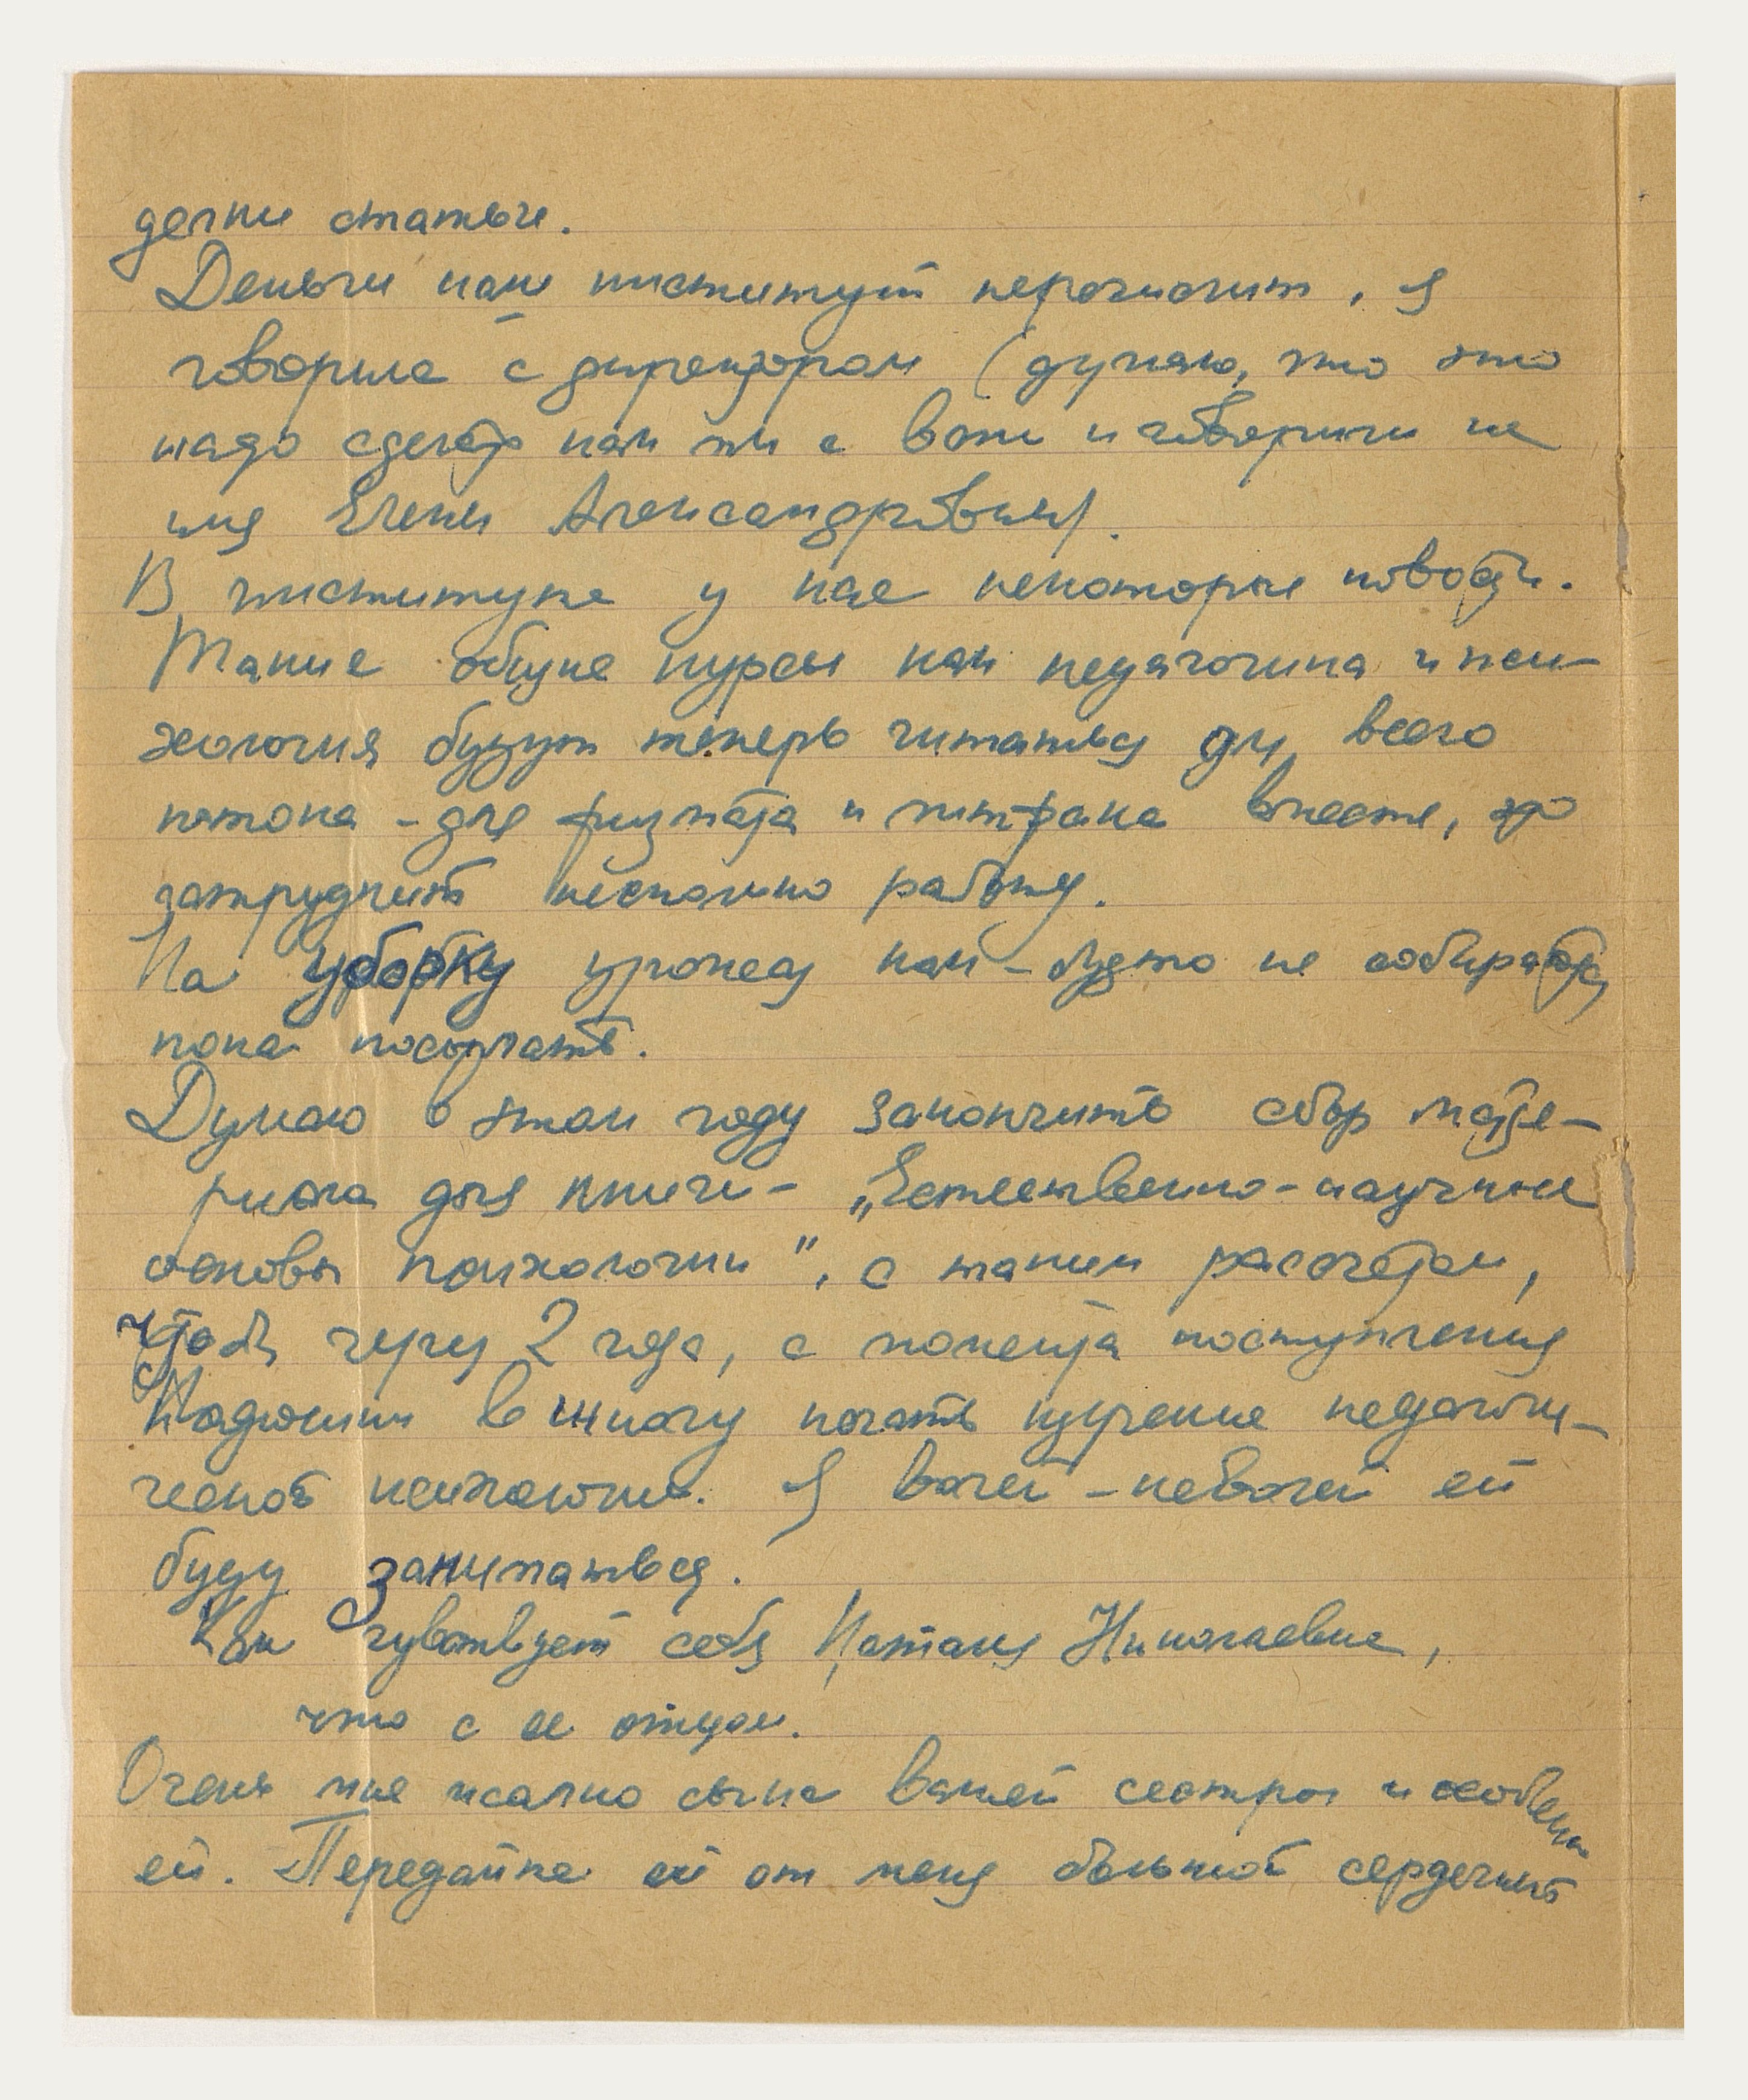 делки статьи.
Деньги нам институт перечислит, я
говорила с директором (думаю, что это
надо сделать как мы с вами и говорили на
имя Елены Александровны).
В институте у нас некоторые новости.
Такие общие курсы как педагогика и пси-
хология будут теперь читаться для всего
потока - для физмата и литфака вместе, это
затруднит несколько работу.
На уборку урожая как-будто не собираются
пока посылать.
Думаю в этом году закончить сбор мате-
риала для книги - „Естественно-научные
основы психологии", с таким расчетом,
чтобы через 2 года, с момента поступления
Надюшки в школу начать изучение педагоги-
ческой психологии. Я волей-неволей ей
буду заниматься.
Как чувствует себя Наталия Николаевна,
что с ее отцом.
Очень мне жалко сына вашей сестры и особенно
ей. Передайте ей от меня большой сердечный